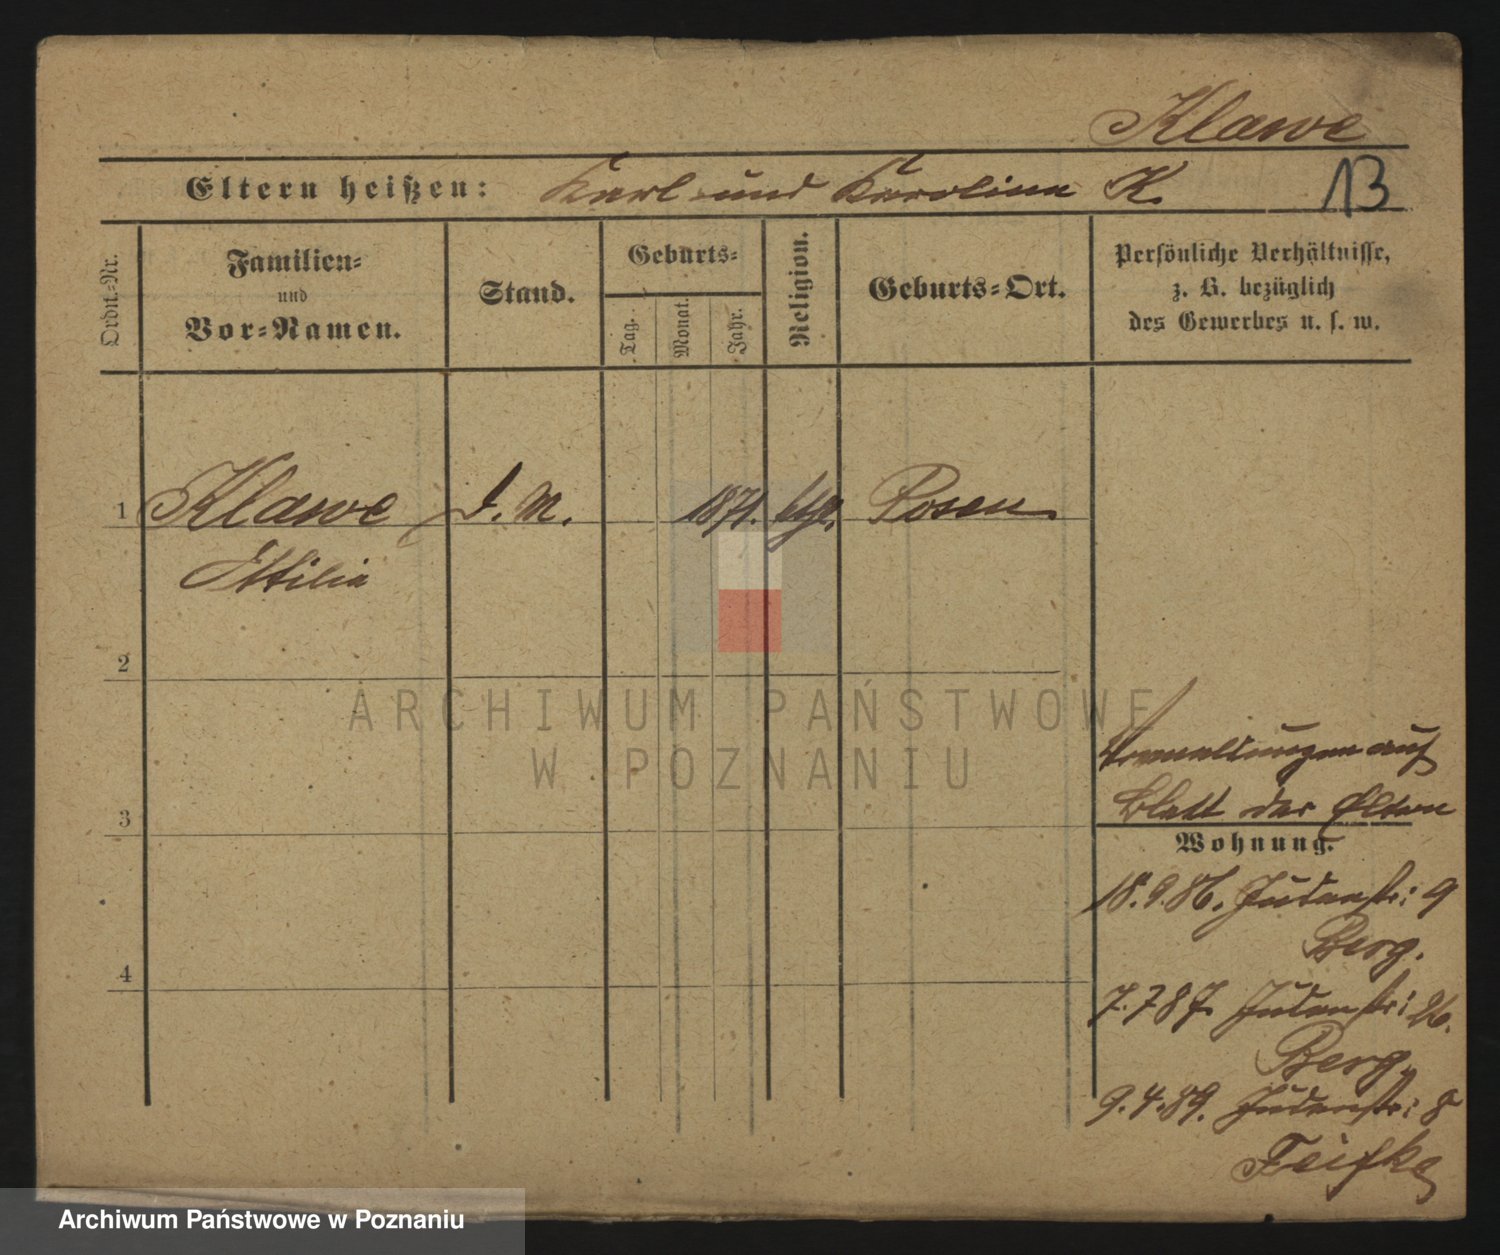 Klawe
Eltern heißen: Karl und Karolina K.
13
Ordn.-Nr.
Familien-
und
Vor-Namen.
Stand.
Geburts-
Tag.
Monat.
Jahr.
Religion.
Geburts-Ort.
Persönliche Verhältnisse,
z. B. bezüglich
des Gewerbes u. s. w.
1 Klawe d. M. 1871. ktl. Posen
Ottilia
2
3
4
ARCHIWUM PAŃSTWOWE
W POZNANIU
auf
Blatt der Eltern
Wohnung.
18.9.86. Judenstr: 9
Berg.
7.7 87. Judenstr: 26.
Berg.
9.4.89. Judenstr: 8
Archiwum Państwowe w Poznaniu